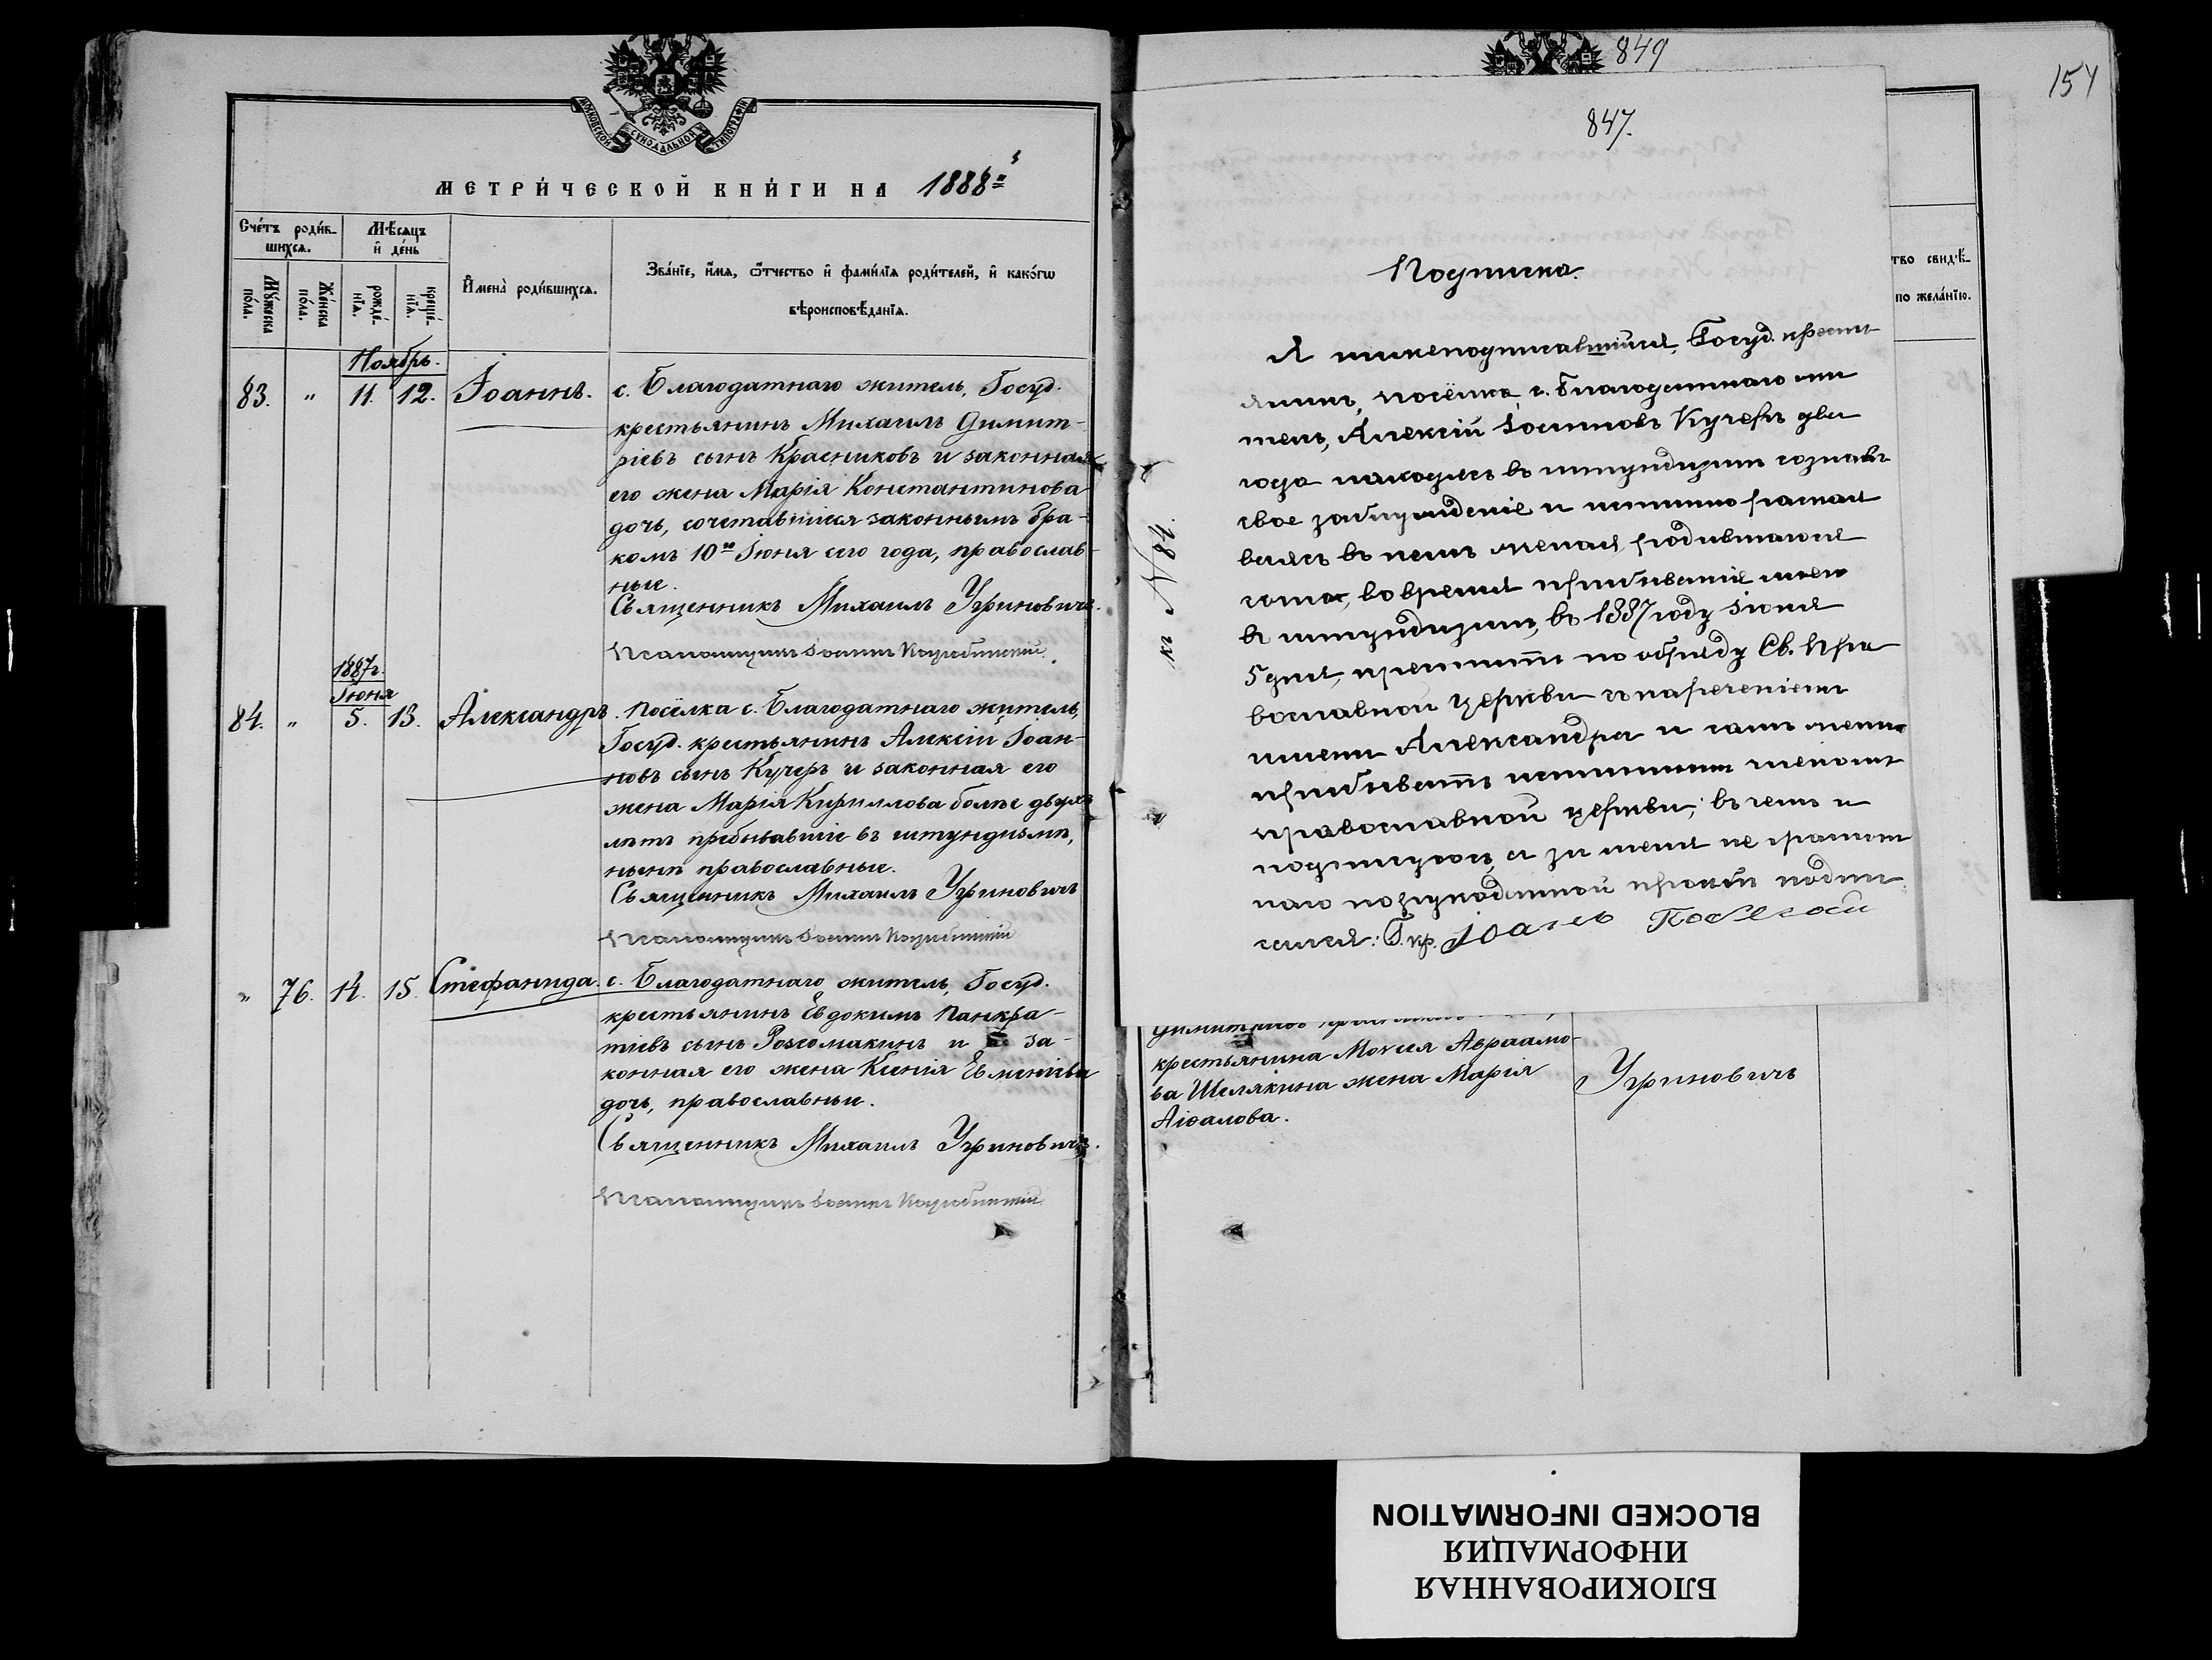 МОСКОВСКОЙ СѴНОДАЛЬНОЙ ТИПОГРАФІИ
МЕТРИ́ЧЕСКОЙ КНИ́ГИ НА 1888й
Сче́тъ роди́в-
шихся.
Мѣ́сяцъ
и҆ де́нь
И҆мена̀ роди́вшихся.
Зва́нїе, и҆́мя, ѻ҆́тчество и҆ фами́лїя роди́телей, и҆ како́гѡ
вѣроисповѣ́данїя.
Мꙋ́жеска
по́ла.
Же́нска
по́ла.
рожде́-
нїя.
креще́-
нїя.
Ноябрь.
83. " 11. 12. Іоаннъ. с. Благодатнаго житель, Госуд.
крестьянинъ Михаилъ Димит-
ріевъ сынъ Красниковъ и законная
его жена Марія Константинова
дочь, сочетавшіеся законнымъ бра-
комъ 10го Іюня сего года, православ-
ные.
Священникъ Михаилъ Угриновичъ.
Псаломщикъ Іоаннъ Коцюбинскій.
1887г.
Іюня
84. " 5. 13. Александръ. Посёлка с. Благодатнаго житель,
Госуд. крестьянинъ Алексій Іоан-
новъ сынъ Кучеръ и законная его
жена Марія Кириллова болѣе двухъ
лѣтъ пребывавшіе въ штундизмѣ,
нынѣ православные.
Священникъ Михаилъ Угриновичъ
Псаломщикъ Іоаннъ Коцюбинскій
" 76. 14. 15. Стефанида. с. Благодатнаго житель, Госуд.
крестьянинъ Евдокимъ Панкра-
тіевъ сынъ Розсомакинъ и за-
конная его жена Ксенія Евменіева
дочь, православные.
Священникъ Михаилъ Угриновичъ.
Псаломщикъ Іоаннъ Коцюбинскій
849
154
847.
Подписка.
Я нижеподписавшійся, Госуд. крестья
янинъ, посёлка, с. Благодатнаго жи
тель, Алексій Іоанновъ Кучеръ два
года находясь въ штундизмѣ сознавъ
свое заблужденіе и истинно раскаи
ваясь въ немъ желаю, родившагося
сына, во время пребыванія моего
въ штундизмѣ, въ 1887 году Іюня
5 дня, крестить по обряду Св. Пра
вославной церкви съ нареченіемъ
имени Александра и самъ желаю
пребывать истиннымъ членомъ
православной церкви; въ чемъ и
подписуюсь, а за меня не грамот
наго по рукоданной просьбѣ подпи
сался: Г. кр. Іоанъ
къ № 84.
тво свидѣ́-
по жела́нїю.
крестьянина Моѵсея Авраамо-
ва Шелякина жена Марія
Аіѳалова.
Угриновичъ
БЛОКИРОВАННАЯ
ИНФОРМАЦИЯ
BLOCKED INFORMATION